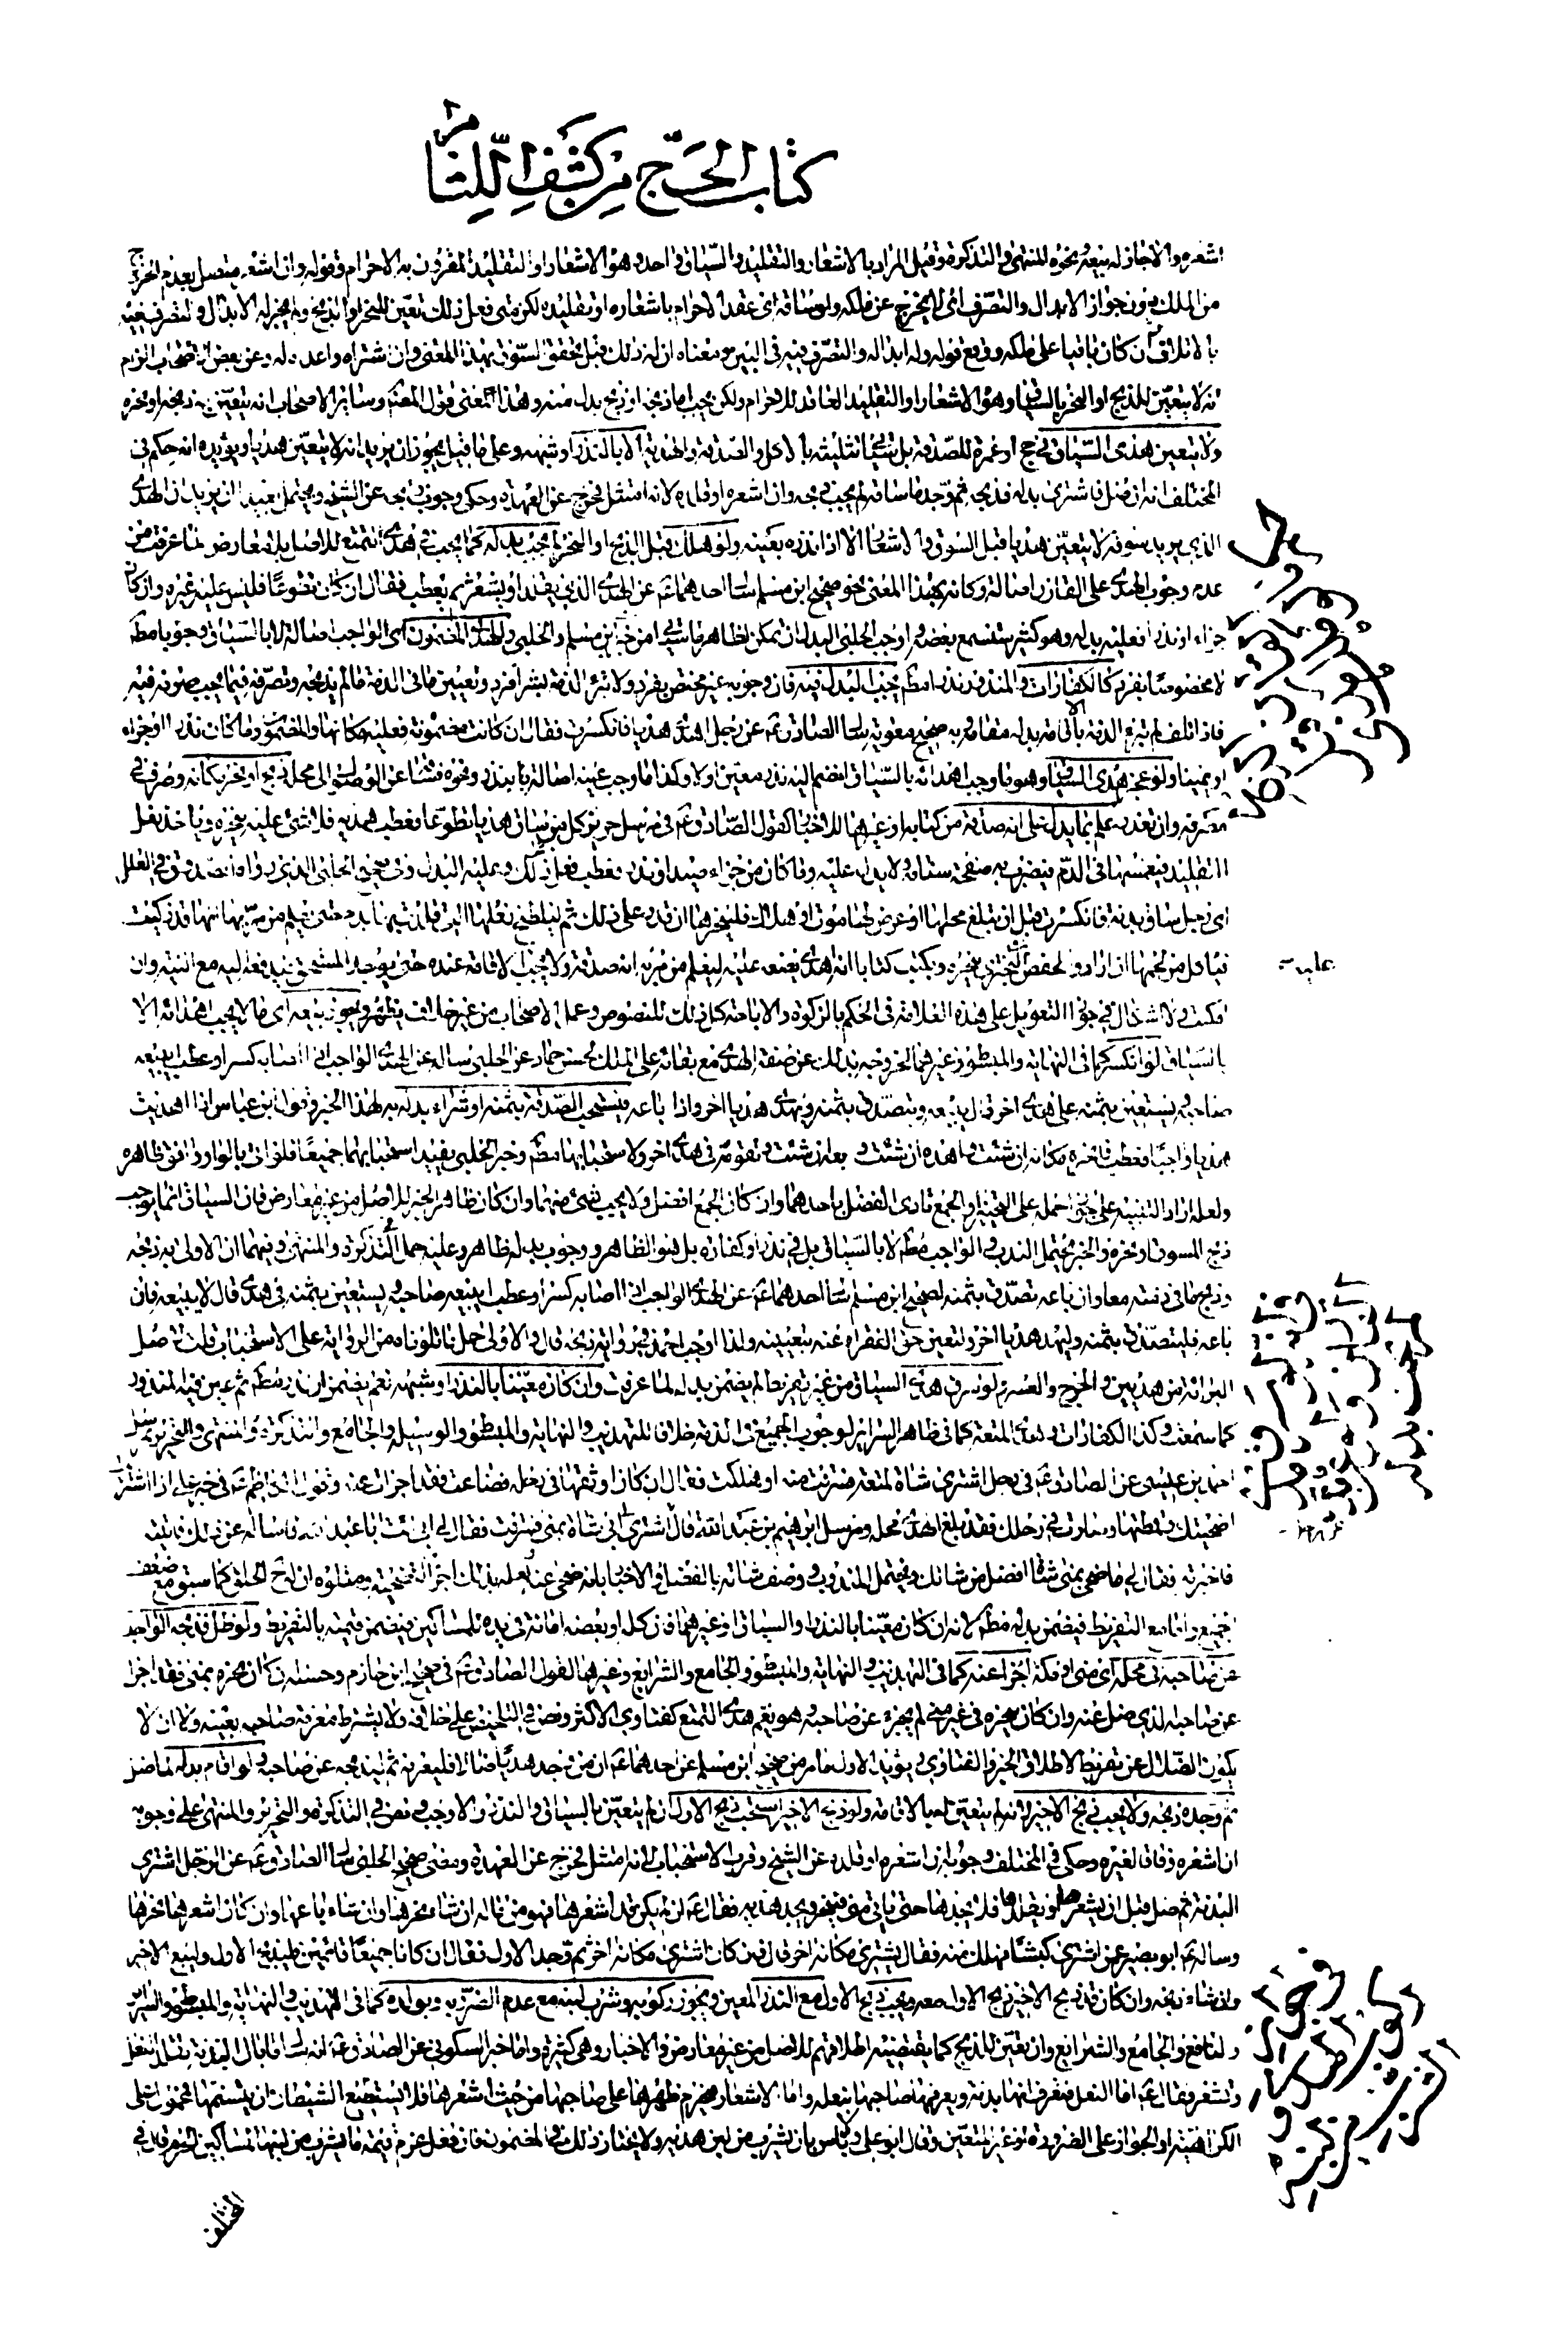 كتاب الحج من كشف اللثام
اشعره والا جاز له بيعه ونحوه المنتهى والتذكرة وقيل المراد بالاشعار والتقليد والسياق واحد وهو الاشعار او التقليد المقرون به الاحرام وقوله وان اشعره متصل بعدم الخروج
من الملك دون جواز الابدال والتصرف اى لم يخرج عن ملكه ولو ساقه اى عقد الاحرام باشعاره او تقليده لكن متى فعل ذلك تعين للنحر او الذبح ولم يجز له الابدال والتصرف فيه
بالاتلاف وان كان باقيا على ملكه ووقع قوله وله ابداله والتصرف فيه في البين ومعناه ان له ذلك قبل تحقق السوق بهذا المعنى وان اشتراه واعده له وعن بعض الاصحاب الزم
انه لا يتعين للذبح او النحر بالسياق وهو الاشعار او التقليد العاقد للاحرام ولكن يجب اما ذبحه او ذبح بدل منه وهذا المعنى قول المصنف وسائر الاصحاب انه يتعين به ذبحه او نحره
ولا يتعين هدى السياق لحج او عمرة للصدقة بل يستحب تثليثه بالاكل والصدقة والهدية الا بالنذر او شبهه وعلى ما قيل يجوز ان يريد انه لا يتعين هديا ويؤيده انه حكم في
المختلف انه ان ضل فاشترى بدله فذبحه ثم وجد ما ساقه لم يجب ذبحه وان اشعره او قلده لانه امتثل فخرج عن العهدة وحكى وجوب ذبحه عن الشيخ ويحتمل بعيدا ان يريد ان الهدى
الذى يريد سوقه لا يتعين هديا قبل السوق والاشعار الا اذا نذره بعينه ولو هلك قبل الذبح او النحر لم يجب بدله كما يجب في هدى التمتع للاصل بلا معارض لما عرفت من
عدم وجوب الهدى على القارن اصالة وكانه بهذا المعنى نحو صحيح ابن مسلم سأل احدهما ع عن الهدى الذى يقلد او يشعر ثم يعطب فقال ان كان تطوعا فليس عليه غيره وان كان
جزاء او نذرا فعليه بدله وهو كثير ستسمع بعضه و اوجب الحلبي البدل ان تمكن لظاهر ما سيأتى من خبر ابن مسلم والحلبي والهدى المضمون اى الواجب اصالة لا بالسياق وجوبا مطلقا
لا مخصوصا بفرد كالكفارات والمنذور نذرا مطلقا يجب البدل فيه فان وجوبه غير مختص بفرد ولا تبرأ الذمة بشراء فرد وتعيين ما في الذمة ما لم يذبحه وتصرفه فيما يجب صرفه فيه
فاذا تلف لم تبرء الذمة الا باقامة بدله مقامه وبه صحيح معوية سأل الصادق ع عن رجل اهدى هديا فانكسرت فقال ان كانت مضمونة فعليه مكانها والمضمون ما كان نذرا او جزاء
او يمينا ولو عجز هدى السياق وهو ما وجب اهدائه بالسياق انضم اليه نذر معين او لا وكذا ما وجب عينه اصالة بنذر ونحوه منشأ عن الوصول الى محله ذبح او نحر مكانه وصرف في
مصرفه وان تعذر علم بما يدل على انه صدقة من كتابه او غيرها للاخبار كقول الصادق ع في مرسل حريز كل من ساق هديا تطوعا فعطب هديه فلا شئ عليه ينحره وياخذ نعل
التقليد فيغمسها في الدم فيضرب به صفحة سنامه ولا بدل عليه وما كان من جزاء صيد او نذر فعطب فعل مثل ذلك وعليه البدل وفي صحيح الحلبي الذى رواه الصدوق في العلل
اى رجل ساق بدنة فانكسرت قبل ان تبلغ محلها او عرض لها موت او هلاك فلينحرها ان قدر على ذلك ثم ليلطخ نعلها التى قلدت بها بدم حتى يعلم من مر بها انها قد ذكيت
فياكل من لحمها ان اراد ولحفص بن البخترى ينحره ويكتب كتابا انه هدى يضعه عليه ليعلم من مر به انه صدقة ولا يجب الاقامة عنده حتى يوجد المستحق فيدفعه اليه مع النية وان
بالسياق لو انكسر كما في النهاية والمبسوط وغيرهما لخروجه بذلك عن صفة الهدى مع بقائه على الملك لحسن حماد عن الحلبي سأله عن الهدى الواجب اذا اصابه كسر او عطب ايبيعه
صاحبه ويستعين بثمنه على هدى اخر قال يبيعه ويتصدق بثمنه ويهدى هديا اخر واذا باعه فيستحب الصدقة بثمنه او شراء بدله به لهذا الخبر وقول ابن عباس اذا اهديت
هديا واجبا فعطب فانحره مكانه ان شئت واهده ان شئت وبعه ان شئت وتقو به في هدى اخر ولاستحبابها مطلقا وخبر الحلبي يفيد استحبابهما جميعا فلو اتى بالواو وافق ظاهره
ولعله اراد التنبيه على جواز حمله على التخيير او الجمع وتأدى الفضل باحدهما وان كان الجمع افضل ولا يجب شئ منهما وان كان ظاهر الخبر للاصل من غير معارض فان السياق انما يوجب
ذبح المسوق او نحره والخبر يحتمل الندب والواجب مطلقا لا بالسياق بل في نذر او كفارة بل هو الظاهر ووجوب بدله ظاهر وعليه حمل في التذكرة والمنتهى وفيهما ان الاولى به ذبحه
وذبح ما في ذمته معا وان باعه تصدق بثمنه لصحيح ابن مسلم سأل احدهما ع عن الهدى الواجب اذا اصابه كسر او عطب ايبيعه صاحبه ويستعين بثمنه في هدى قال لا يبيعه فان
باعه فليتصدق بثمنه وليهد هديا اخر ولتعين حق الفقراء عنه بتعيينه ولذا اوجب احمد في رواية ذبحه قال والاولى حمل ما تلوناه من الرواية على الاستحباب قلت لاصل
البرائة من هديين والحرج والعسر ولو سرق هدى السياق من غير تفريط لم يضمن بدله لما عرفت وان كان معينا بالنذر او شبهه نعم يضمن ان نذر مطلقا ثم عين فيه المنذور
كما سمعت وكذا الكفارات وهدى المتعة كما في ظاهر السرائر لوجوب الجميع في الذمة خلافا للتهذيب والنهاية والمبسوط والوسيلة والجامع والتذكرة والمنتهى والتحرير لمرسل
احمد بن عيسى عن الصادق ع في رجل اشترى شاة لمتعته فسرقت منه او هلكت فقال ان كان اوثقها في رحله فضاعت فقد اجزأت عنه وقول الكاظم ع في خبر على اذا اشتريت
اضحيتك وقمطتها وصارت في رحلك فقد بلغ الهدى محله ومرسل ابرهيم بن عبد الله قال اشترى لى ابى شاة بمنى فسرقت فقال لى ابى ائت ابا عبد الله فاساله عن ذلك فاتيته
فاخبرته فقال لى ما ضحى بمنى شاة افضل من شاتك ويحتمل المندوب ووصف شاته بالفضل والاخبار بانه ضحى عنه
جميع واما مع التفريط فيضمن بدله مطلقا لانه ان كان معينا بالنذر او السياق او غيرهما فان كله او بعضه امانة في يده للمساكين فيضمن قيمته بالتفريط ولو ضل فذبحه الواجد
عن صاحبه في محله اى منى او مكة اجزأ عنه كما في التهذيب والنهاية والمبسوط والجامع والشرايع وغيرها لقول الصادق ع في صحيح ابن حازم وحسنه ان كان نحره بمنى فقد اجزأ
عن صاحبه الذى ضل عنه وان كان نحره في غير منى لم يجز عن صاحبه وهو يعم هدى التمتع كفتاوى الاكثر ونص في التلخيص على خلافه ولا يشترط معرفة صاحبه بعينه ولا ان لا
يكون الضلال عن تفريط لاطلاق الخبر والفتاوى ويؤيد الاول ما مر من صحيح ابن مسلم عن احدهما ع ان من وجد هديا ضالا فليعرفه ثم ليذبحه عن صاحبه ولو اقام بدله لما ضل
ثم وجده ذبحه ولا يجب ذبح الاخير لانه لم يتعين له بالاقامة ولو ذبح الاخير استحب ذبح الاول ان لم يتعين بالسياق والنذر والا وجب ونص في التذكرة والتحرير والمنتهى على وجوبه
ان اشعره وفاقا لغيره وحكى في المختلف وجوبه ان اشعره او قلده عن الشيخ وقرب الاستحباب لانه امتثل فخرج عن العهدة ومعنى صحيح الحلبي سأل الصادق ع عن الرجل اشترى
البدنة ثم ضل قبل ان يشعرها او يقلدها فلا يجدها حتى ياتى منى فينحر ويجد هديه فقال ع ان لم يكن قد اشعرها فهو من ماله ان شاء نحرها وان شاء باعها وان كان اشعرها نحرها
وساله ع ابو بصير عمن اشترى كبشا فهلك منه فقال يشترى مكانه اخر قال فان كان اشترى مكانه اخر ثم وجد الاول فقال ان كانا جميعا قائمين فليذبح الاول وليبع الاخير
وان شاء ذبحه وان كان قد ذبح الاخير ذبح الاول معه ويجب ذبح الاول مع النذر المعين ويجوز ركوبه وشرب لبنه مع عدم الضرر به وبولده كما في التهذيب والنهاية والمبسوط والسرائر
والنافع والجامع والشرايع وان تعين للذبح كما يقتضيه اطلاقهم للاصل من غير معارض والاخبار وهى كثيرة واما خبر السكونى عن الصادق ع انه سأل ما بال البدنة تقلد النعل
وتشعر فقال ع اما النعل فتعرف انها بدنة ويعرفها صاحبها بنعله واما الاشعار فيحرم ظهرها على صاحبها من حيث اشعرها فلا يستطيع الشيطان ان يتسنمها فمحمول على
الكراهية او الجواز على الضرورة او غير المتعين وقال ابو على ولا باس بان يشرب من لبن هديه ولا يختار ذلك في المضمون فان فعل غرم قيمة ما يشرب من لبنها لمساكين الحرم قال في
المختلف